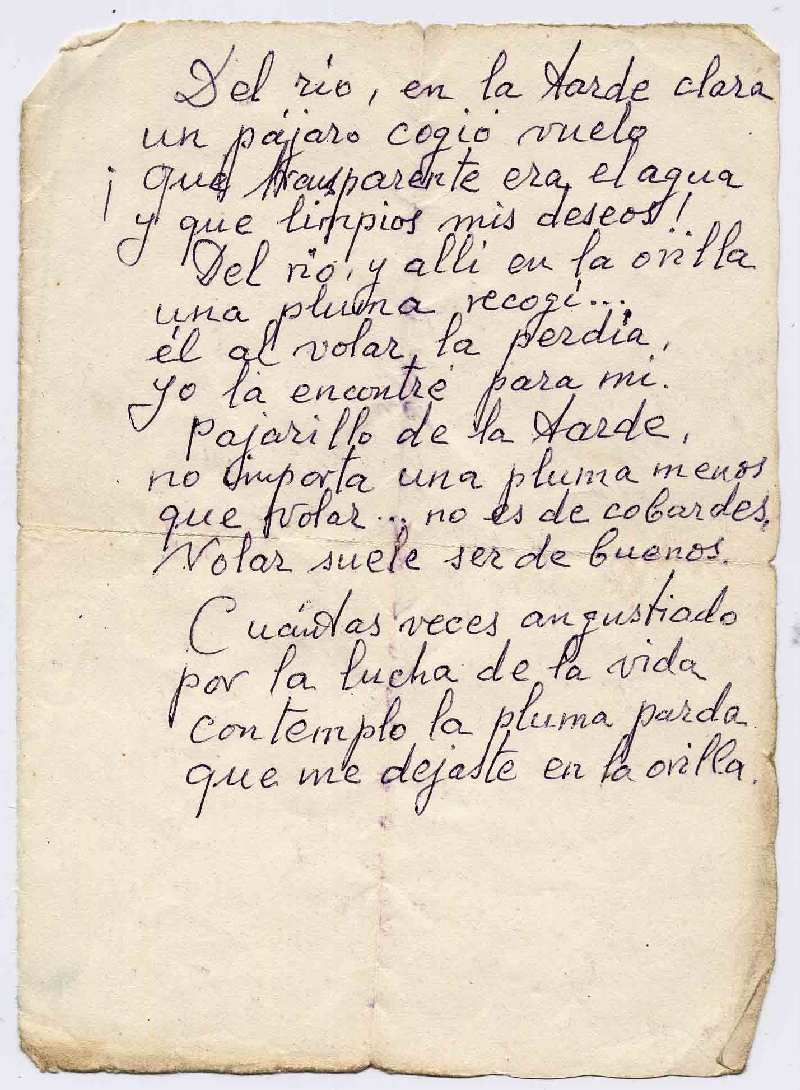 Del río, en la tarde clara
un pájaro cogió vuelo
¡ que trasparente era el agua
y que limpios mis deseos!
Del río, y alli en la orilla
una pluma recogí...
él al volar, la perdía,
yo la encontré para mi.
Pajarillo de la tarde,
no importa una pluma menos
que volar... no es de cobardes,
Volar suele ser de buenos.
Cuántas veces angustiado
por la lucha de la vida
contemplo la pluma parda
que me dejaste en la orilla.